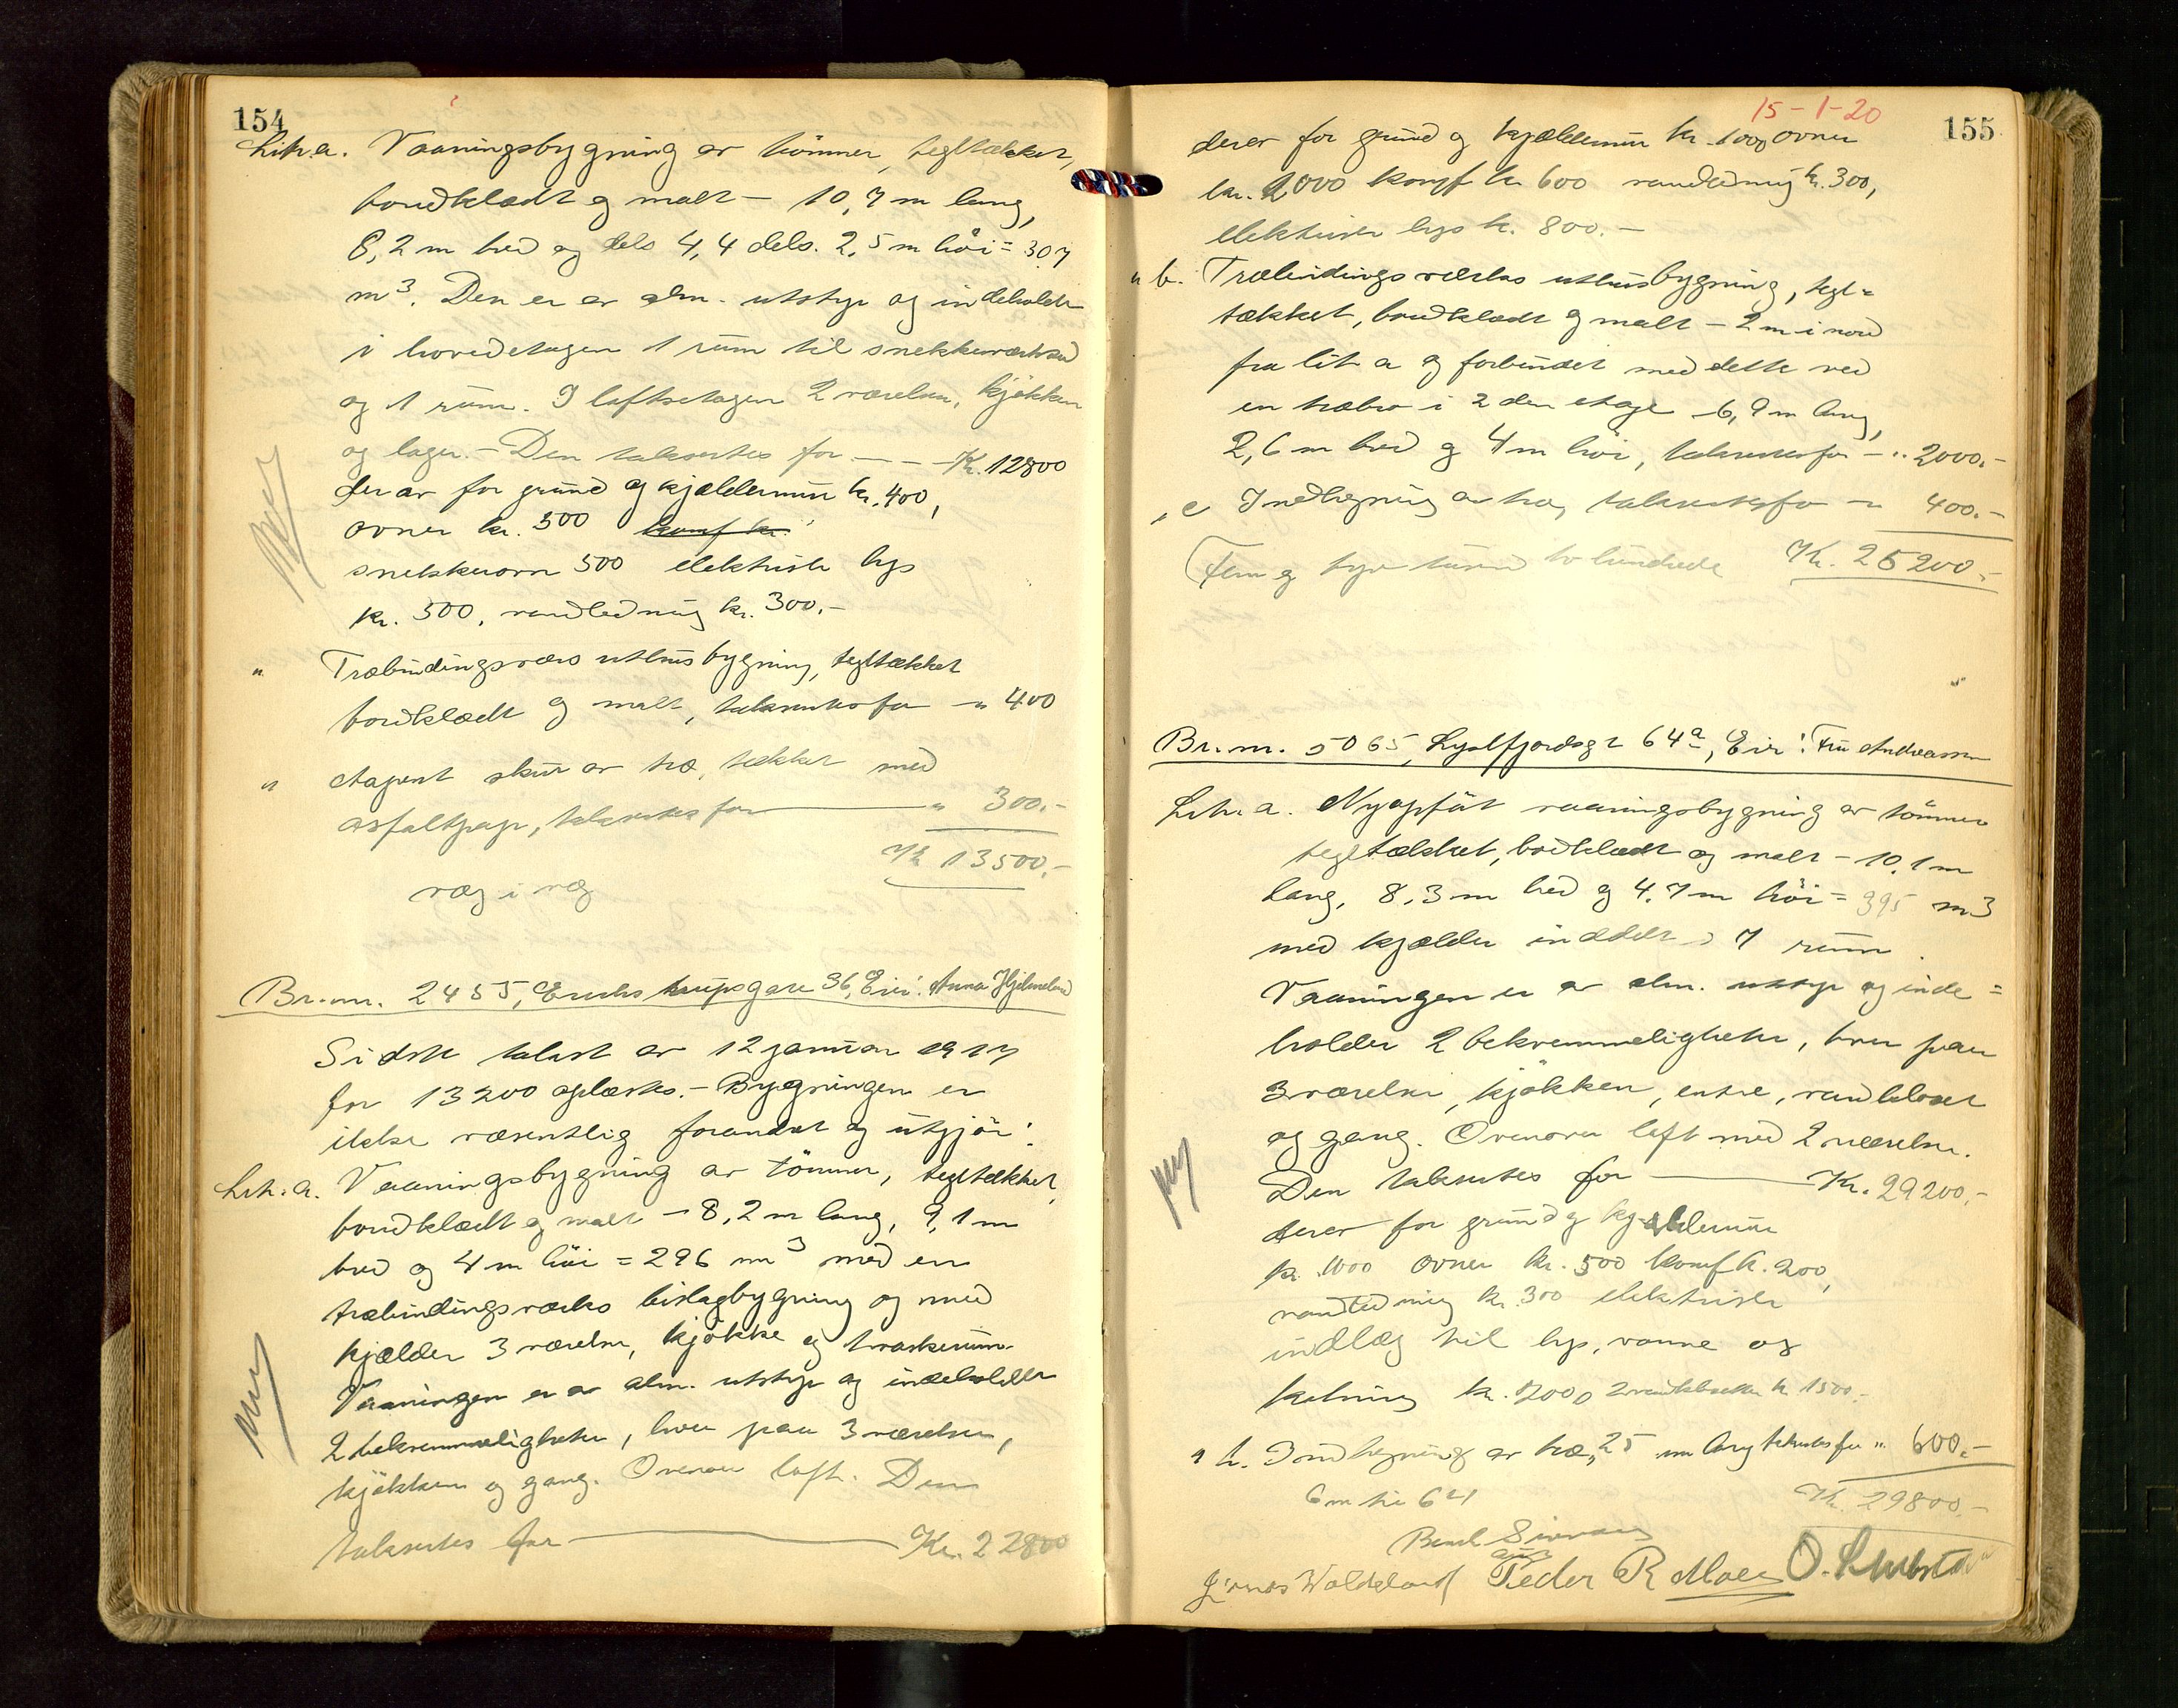 154
Litr. a. Vaaningsbygning av tømmer, tegltækket,
bordklædt og malt – 10,7 m lang,
8,2 m bred og dels 4,4 dels 2,5 m høi = 307
m³. Den er av alm. utstyr og indeholder
i hovedetagen 1 rum til snekkerverksted
og 1 rum. I loftsetagen 2 værelser, kjøkken
og lager. – Den taksertes for – – Kr. 12800
derav for grund og kjældermur kr. 400,
ovner kr. 300 komf kr.
snekkerovn 500 elektrisk lys
kr. 500, vandledning kr. 300.–
" Træbindingsverks uthusbygning, tegltækket
bordklædt og malt, taksertes for – " 400
" Aapent skur av træ, tækket med
asfaltpap, taksertes for " 300.–
Kr 13500.–
væg i væg
Br. nr. 2455, Erichstrupsgate 36, Eier: Anna Hjelmeland
Sidste takst av 12 januar 1917
for 13200 oplæstes. – Bygningen er
ikke væsentlig forandret og utgjør:
Litr. a. Vaaningsbygning av tømmer, tegltækket,
bordklædt og malt – 8,2 m lang, 9,1 m
bred og 4 m høi = 296 m³ med en
træbindingsverks bislagbygning og med
kjælder 3 værelser, kjøkken og vaskerum.
Vaaningen er av alm. utstyr og indeholder
2 bekvemmeligheter, hver paa 3 værelser,
kjøkken og gang. Ovenover loft. Den
taksertes for Kr. 22800
15-1-20
155
derav for grund og kjældermur kr. 1000, ovner
kr. 1000 komf kr 600 vandledning kr. 300,
elektrisk lys kr. 800.–
" b. Træbindingsverks uthusbygning, tegl=
tækket, bordklædt og malt – 2 m i nord
fra lit a og forbundet med dette ved
en træbro i 2den etage – 6,9 m lang,
2,6 m bred og 4 m høi, taksertes for – " 2000.–
" c Indhegning av træ, taksertes for – " 400.–
Kr. 25200.–
(Fem og tyve tusind to hundrede
Br. nr. 5065, Lysefjordsgt 64a, Eier: Fru Andreassen
Litr. a. Nyopført vaaningsbygning av tømmer
tegltækket, bordklædt og malt – 10,1 m
lang, 8,3 m bred og 4,7 m høi = 395 m3
med kjælder inddelt i 7 rum.
Vaaningen er av alm. utstyr og inde=
holder 2 bekvemmeligheter, hver paa
3 værelser, kjøkken, entre, vandkloset
og gang. Ovenover loft med 2 værelser.
Den taksertes for Kr. 29200.–
derav for grund og kjældermur
kr. 1000 ovner kr. 500 komf kr. 200,
vandledning kr. 300 elektrisk
indlæg til lys, varme og
kokning kr. 2000 2 vandklosetter kr 1500.–
" b. Indhegning av træ, 25 m lang taksertes for " 600.–
Kr. 29800.–
Jonas Waldeland Peder R Moe